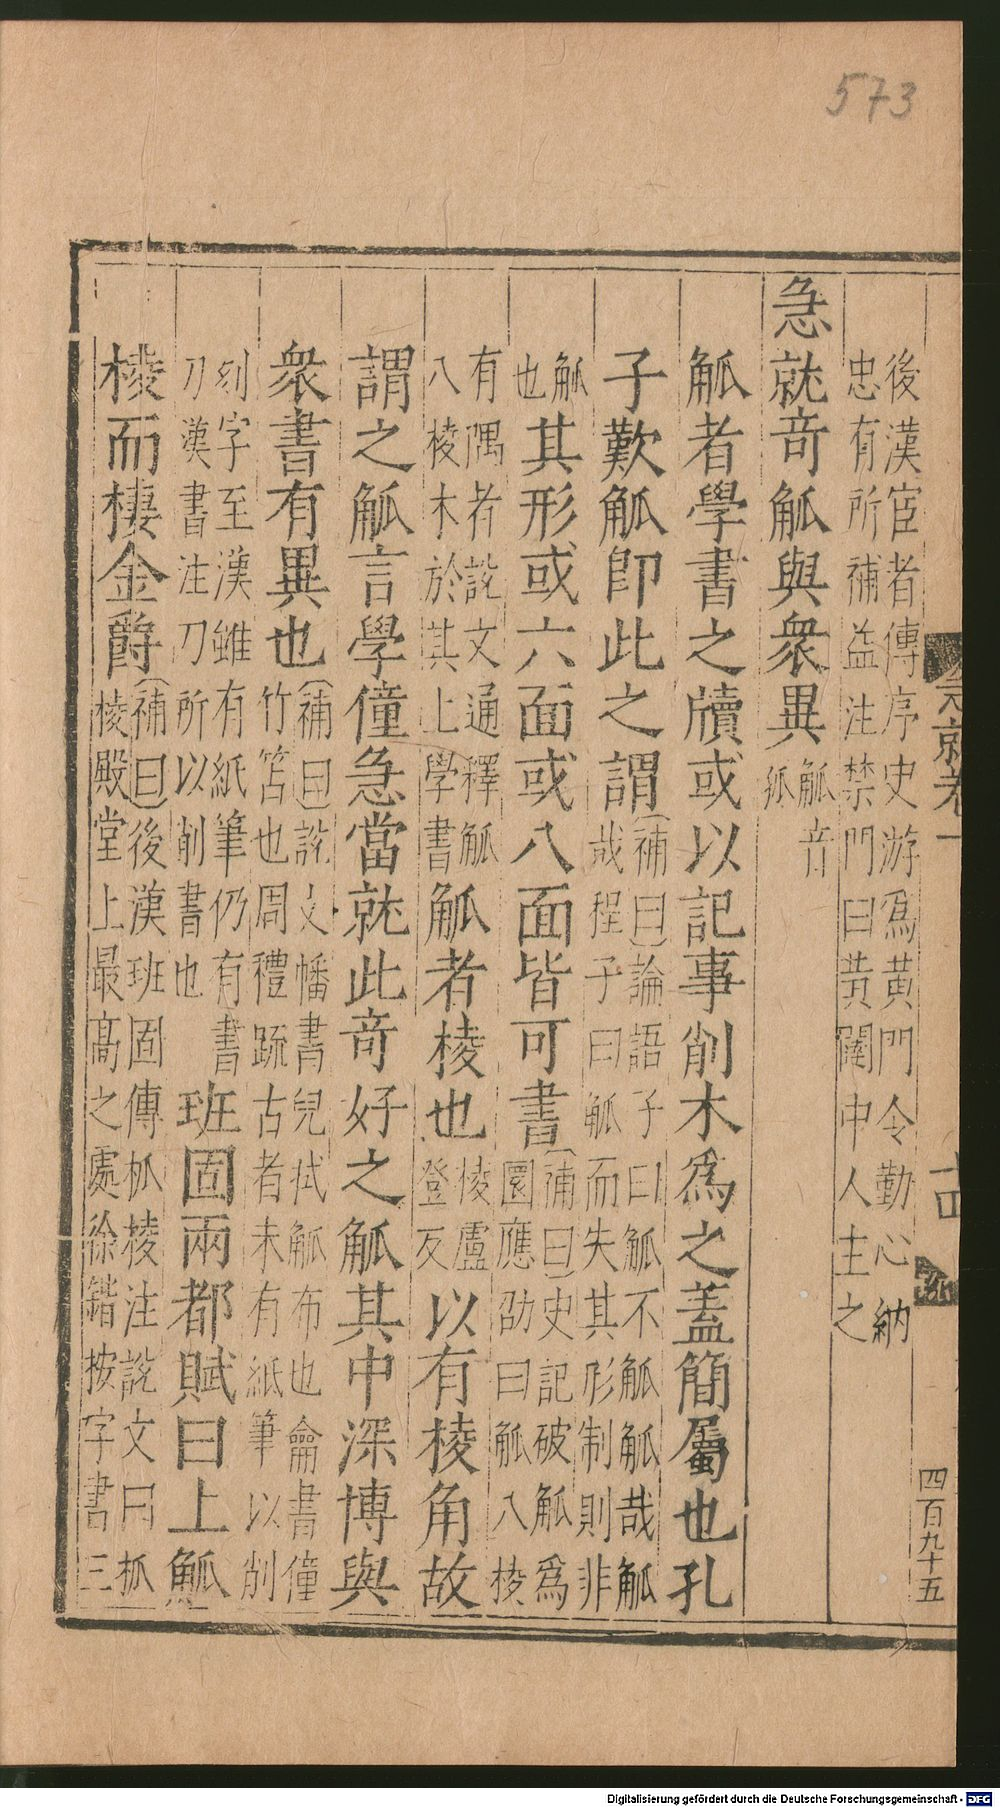 573
急就卷一
十四
四百九十五
後漢宦者傳序史游爲黃門令勤心納
忠有所補益注禁門曰黃闥中人主之
急就奇觚與衆異觚音孤
觚者學書之牘或以記事削木爲之蓋簡屬也孔
子歎觚卽此之謂(補曰)論語子曰觚不觚觚哉觚哉程子曰觚而失其形制則非
觚也其形或六面或八面皆可書(補曰)史記破觚爲圜應劭曰觚八棱
有隅者說文通釋觚八棱木於其上學書觚者棱也棱盧登反以有棱角故
謂之觚言學僮急當就此奇好之觚其中深博與
衆書有異也(補曰)說文幡書兒拭觚布也龠書僮竹笘也周禮疏古者未有紙筆以削
刻字至漢雖有紙筆仍有書刀漢書注刀所以削書也班固兩都賦曰上觚
棱而棲金爵(補曰)後漢班固傳柧棱注說文曰柧棱殿堂上最高之處徐鍇按字書三
Digitalisierung gefördert durch die Deutsche Forschungsgemeinschaft - DFG